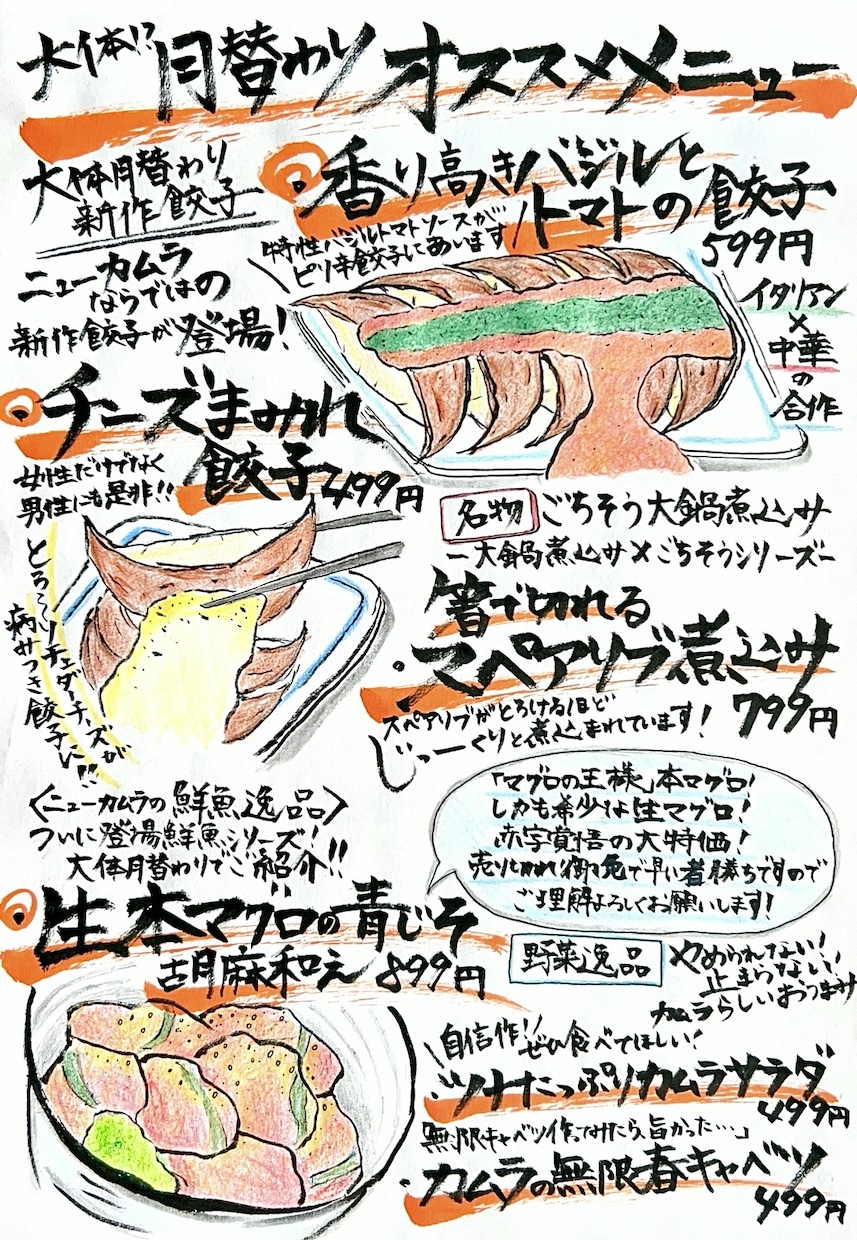 大体!?月替わりオススメメニュー
大体月替わり
新作餃子
ニューカムラ
ならではの
新作餃子が登場!
・香り高きバジルと
トマトの餃子
599円
特性バジルトマトソースが
ピリ辛餃子にあいます
イタリアン
×
中華
の
合作
・チーズまみれ
餃子 499円
女性だけでなく
男性にも是非!!
とろ〜りチェダーチーズが
病みつき餃子に!!
名物 ごちそう大鍋煮込み
ー大鍋煮込み×ごちそうシリーズー
箸で切れる
・スペアリブ煮込み
799円
スペアリブがとろけるほど
じっーくりと煮込まれています!
〈ニューカムラの鮮魚逸品〉
ついに登場鮮魚シリーズ!
大体月替わりでご紹介!!
「マグロの王様」本マグロ!
しかも希少な生マグロ!
赤字覚悟の大特価!
売り切れ御免で早い者勝ちですので
ご理解よろしくお願いします!
・生本マグロの青じそ
胡麻和え 899円
野菜逸品 やめられない!
止まらない!
カムラらしいおつまみ
自信作!!ぜひ食べてほしい!
・ツナたっぷりカムラサラダ
499円
「無限キャベツ作ってみたら、旨かった…」
・カムラの無限春キャベツ
499円